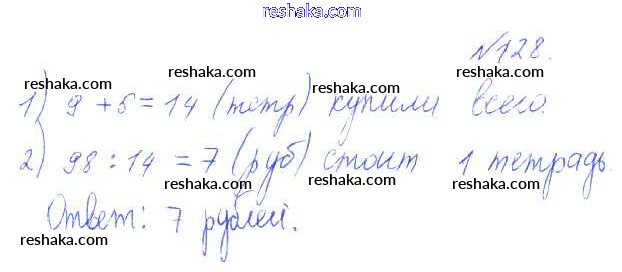 reshaka.com
№128.
reshaka.com reshaka.com reshaka.com
1) 9 + 5 = 14 (тетр) купили всего.
reshaka.com reshaka.com reshaka.com
2) 98 : 14 = 7 (руб) стоит 1 тетрадь.
reshaka.com reshaka.com reshaka.com
Ответ: 7 рублей.
reshaka.com reshaka.com